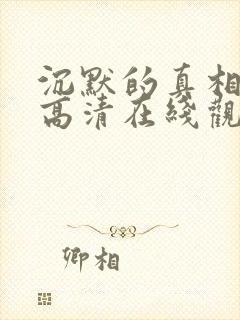 沉默的真相
高清在綫觀
卿相